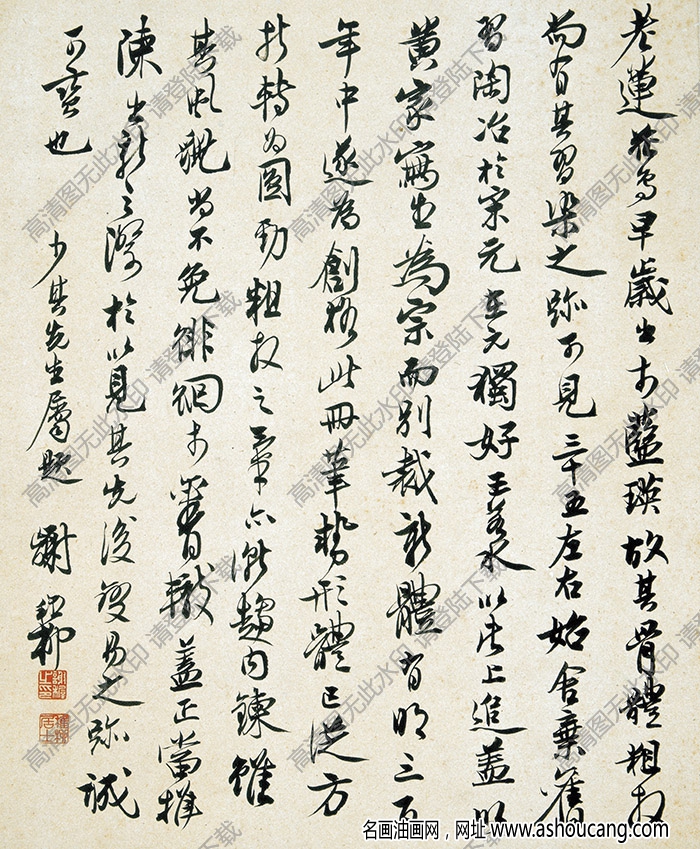 老蓮花鳥早歲出於藍瑛故其骨體粗放
尚有其習染之跡可見三十五左右始舍棄舊
習陶冶於宋元在元獨好王若水以法上追蓋以
黃家寫生為宗而別裁新體有明三百
年中遂為創格此冊筆勢形體已從方
折轉為圓勁粗放之筆亦漸趨內鍊雖
其風貌尚不免徘徊未層轍蓋正當推
陳出新之際於以見其先後變易之跡誠
可寶也
少其先生屬題 謝稚柳
高清图无此水印 请登陆下载
名画油画网,网址 www.ashoucang.com